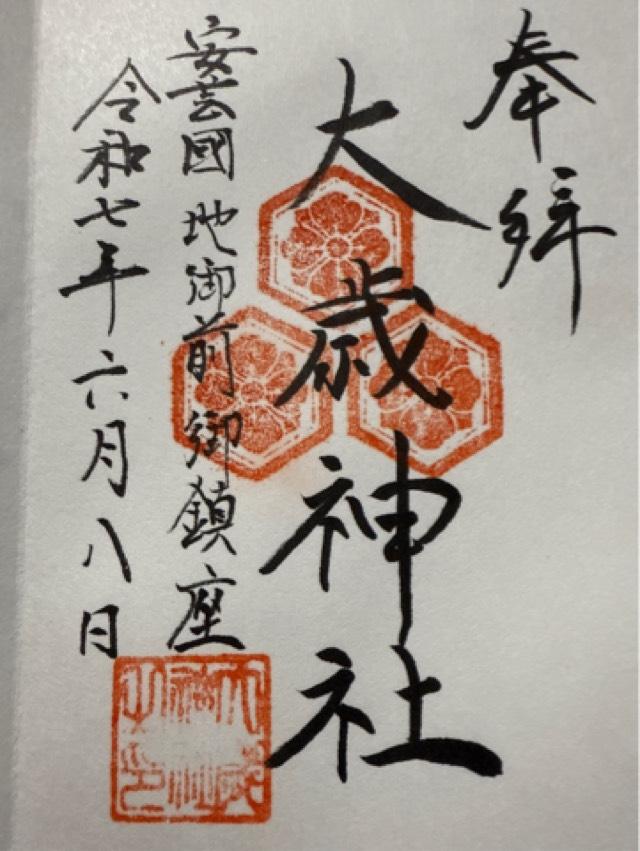 奉拝
大歳神社
安芸國 地御前御鎮座
令和七年六月八日